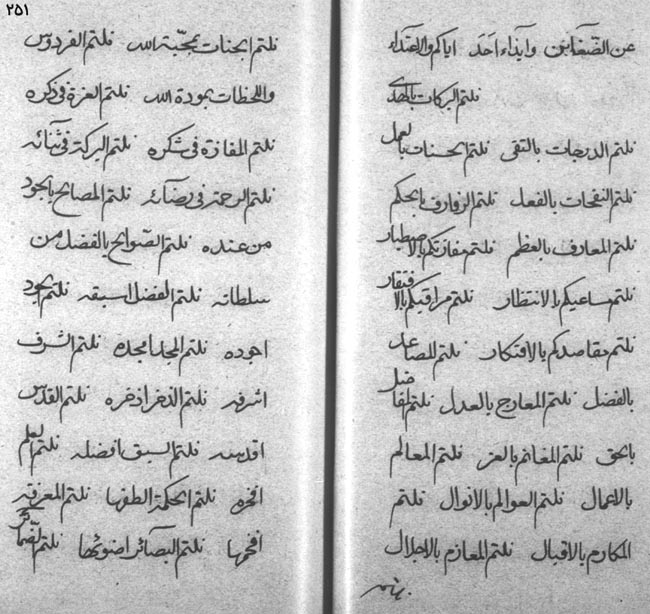 ٢٥١
عن الضغائن وايذاء احد اياكم والاعتداء
نلتم البركات بالهدى
نلتم الدرجات بالتقى نلتم الحسنات بالعمل
نلتم النفحات بالفعل نلتم الزوارف بالحكم
نلتم المعارف بالعظم نلتم مفازتكم بالاصطبار
نلتم مساعيكم بالانتظار نلتم مراقيكم بالافتقار
نلتم مقاصدكم بالافتكار نلتم المصاعد
بالفضل نلتم المعارج بالعدل نلتم
بالحق نلتم المغانم بالعز نلتم المعالم
بالاعمال نلتم العوالم بالاقوال نلتم
المكارم بالاقبال نلتم المعازم بالاجلال
نلتم الجنات بمحبة الله نلتم الفردوس
واللحظات بمودة الله نلتم العزة فى ذكره
نلتم المفازة فى شكره نلتم البركة فى ثنائه
نلتم الرحمة فى رضائه نلتم المصابح بالجود
من عنده نلتم الصوابح بالفضل من
سلطانه نلتم الفضل اسبقه نلتم الجود
اجوده نلتم المجد امجده نلتم الشرف
اشرفه نلتم الذخر اذخره نلتم القدس
اقدسه نلتم السبق افضله نلتم العلم
افخره نلتم الحكمة الطفها نلتم المعرفة
افخمها نلتم البصائر اضوئها نلتم الضمائر